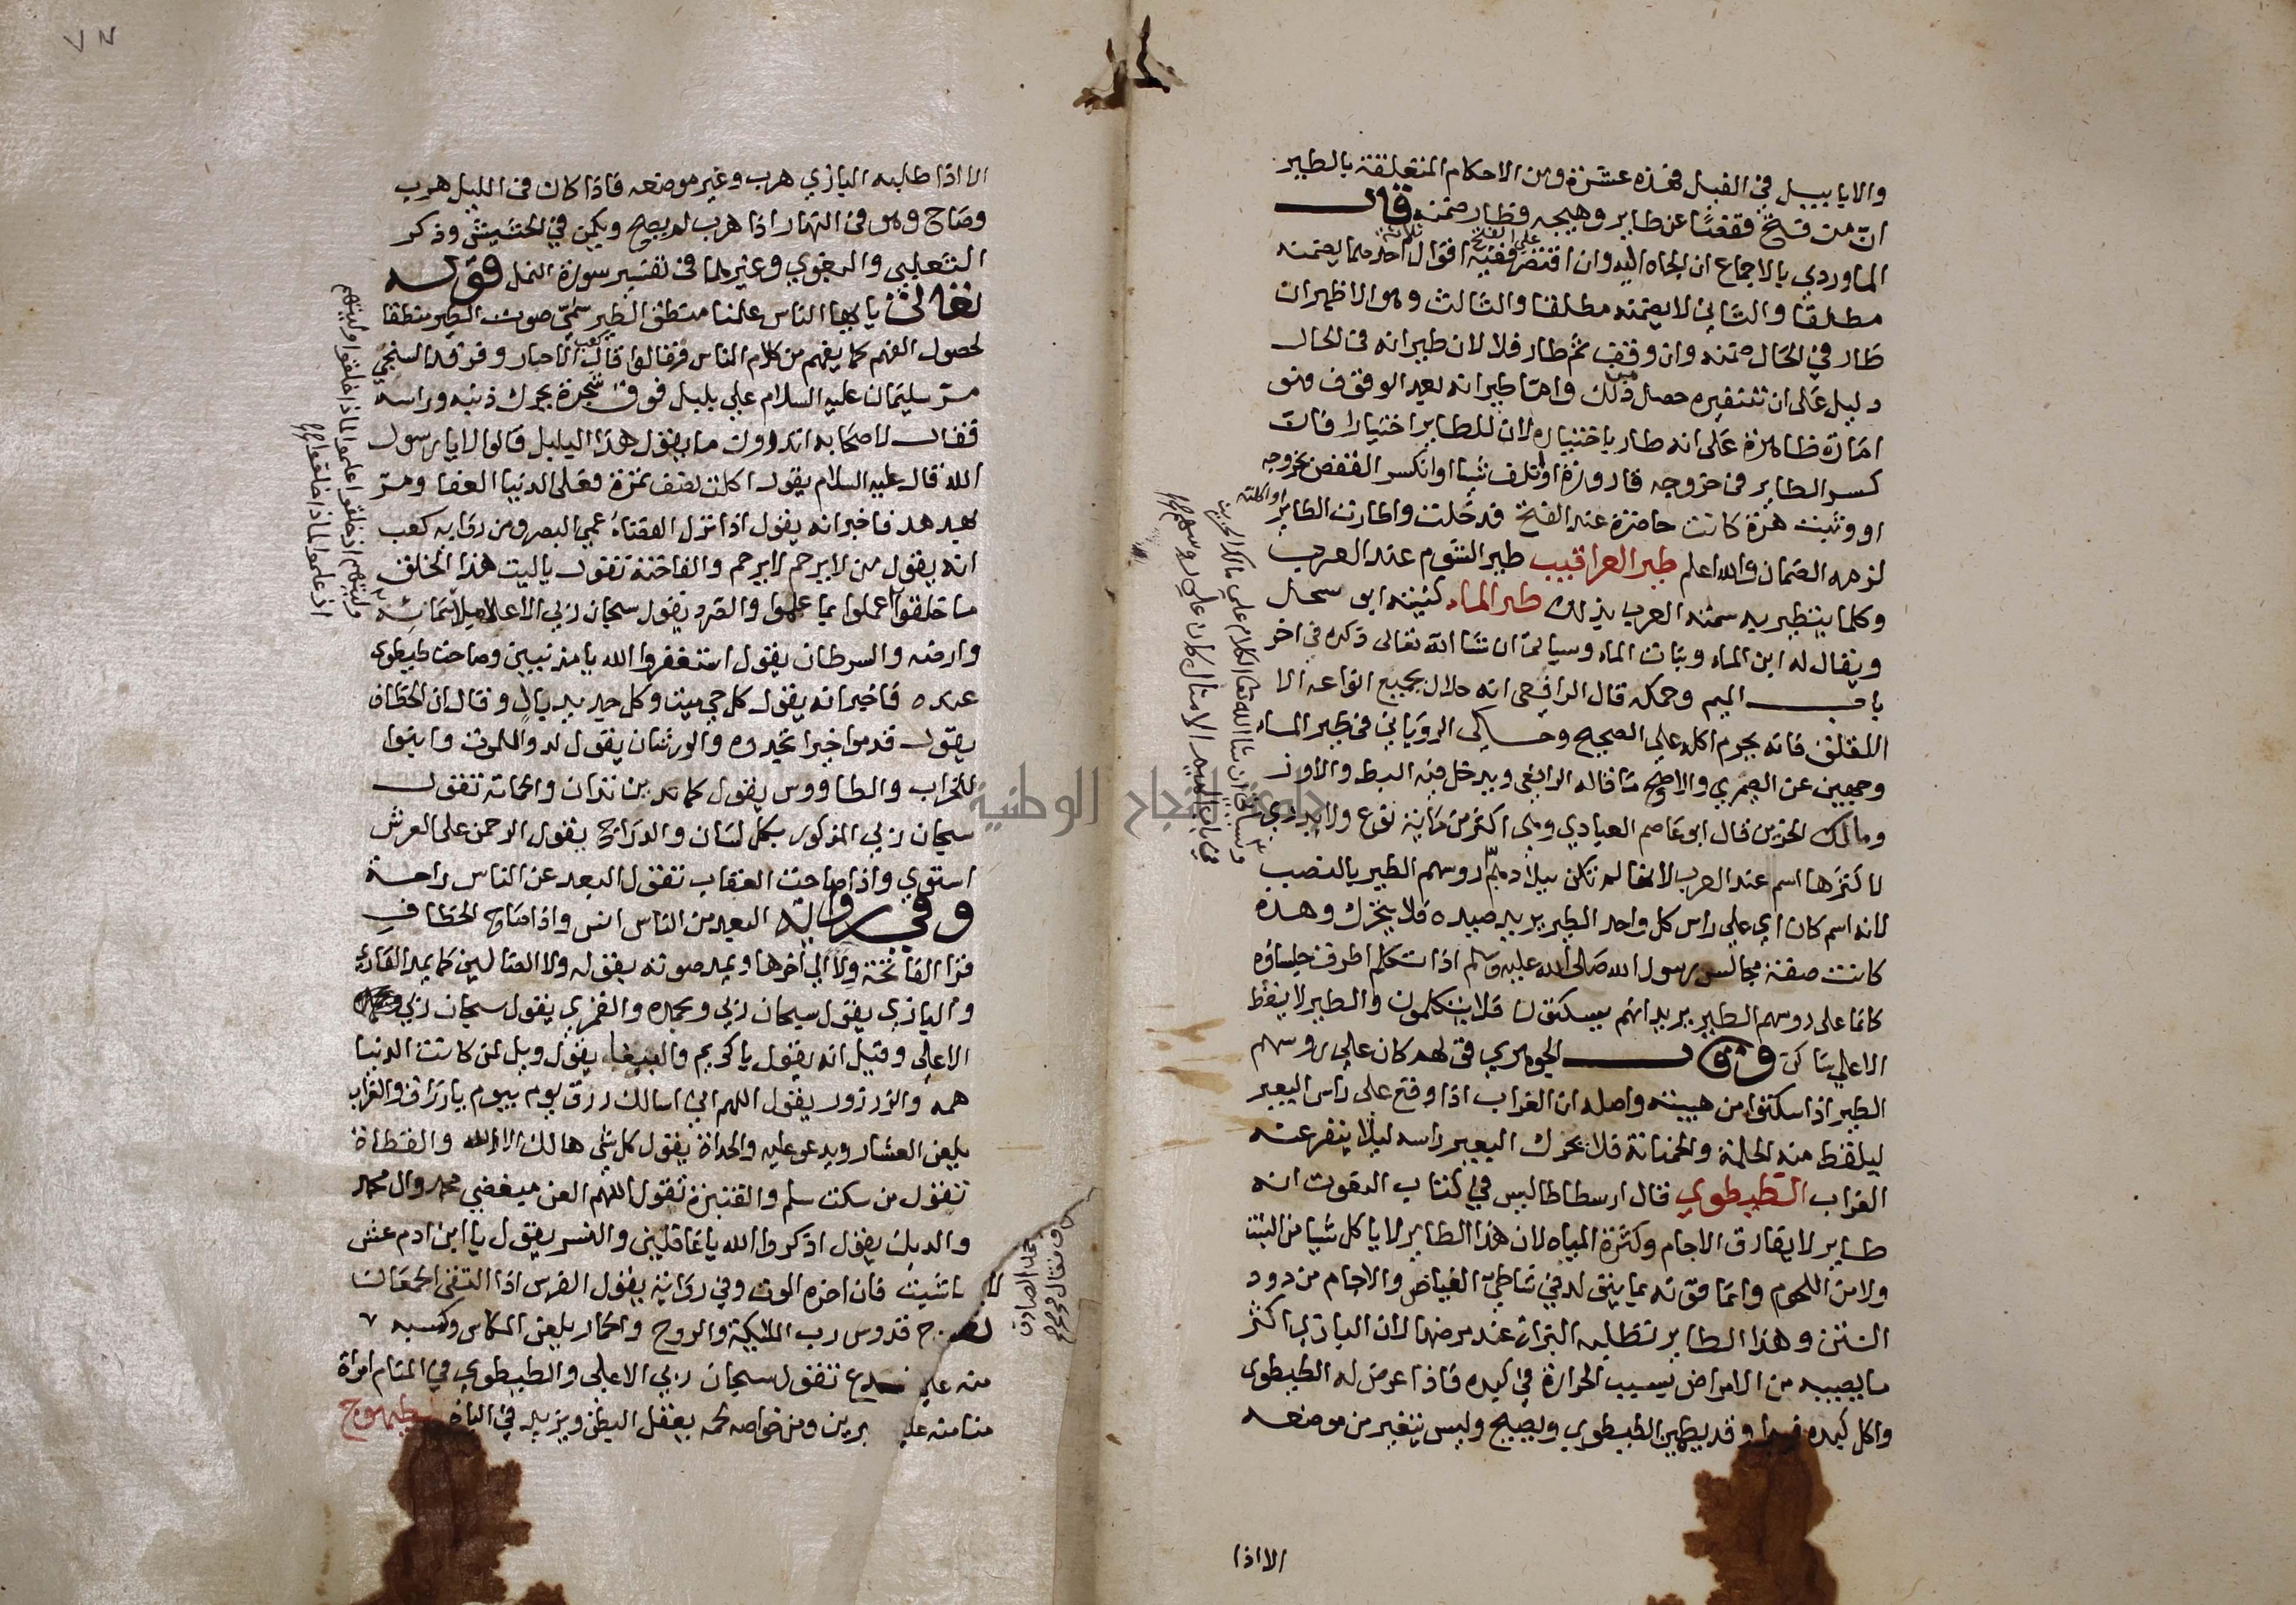 والابابيل في الفيل فهذه عشرة ومن الاحكام المتعلقة بالطير
ان من فتح قفصا عن طاير وهيجه فطار ضمنه قال
الماوردي بالاجماع لانه الجاه اليه وان اقتصر على الفتح ففيه ثلاثة اقوال احدها يضمنه
مطلقا والثاني لا يضمنه مطلقا والثالث وهو الاظهر ان
طار في الحال ضمنه وان وقف ثم طار فلا لان طيرانه في الحال
دليل على ان بتنفيره حصل ذلك واما طيرانه بعد الوقوف فهو
امارة ظاهرة على انه طار باختياره لان للطاير اختيارا فان
كسر الطاير في خروجه قارورة او اتلف شيا او انكسر القفص بخروجه
او وثبت هرة كانت حاضرة عند الفتح فدخلت واكلت الطاير
لزمه الضمان والله اعلم طير العراقيب طير الشوم عند العرب
وكلما يتطير به سمته العرب بذلك طير الماء كنيته ابو سحل
ويقال له ابن الماء وبنات الماء وسياتي ان شا الله تعالى ذكره في اخر
باب الميم وحكمه قال الرافعي انه حلال بجميع انواعه الا
اللقلق فانه يحرم اكله على الصحيح وحكى الروياني في طير الماء
وجهين عن الصيمري والاصح ما قاله الرافعي ويدخل فيه البط والاوز
ومالك الحزين قال ابو عاصم العبادي وهي اكثر من ماية نوع ولا يدري
لاكثرها اسم عند العرب لانها لم تكن ببلادهم روسهم الطير بالنصب
لانه اسم كان اي على راس كل واحد الطير يريد صيده فلا يتحرك وهذه
كانت صفة مجالس رسول الله صلى الله عليه وسلم اذا تكلم اطرق جلساوه
كانما على روسهم الطير يريد انهم يسكنون فلا يتكلمون والطير لا يسقط
الا على ساكن وقال الجوهري قولهم كان على روسهم
الطير اذا سكنوا من هيبته واصله ان الغراب اذا وقع على راس البعير
ليلقط منه الحلمة والحمنانة فلا يحرك البعير راسه ليلا ينفر عنه
الغراب الطيطوي قال ارسطاطاليس في كتاب النعوت انه
طاير لا يفارق الاجام وكثرة المياه لان هذا الطاير لا ياكل شيا من النبت
ولا من اللحوم وانما قوته مما يتولد في شاطي الغياض والاجام من دود
النتن وهذا الطاير تطلبه البزاة عند مرضها لان البازي اكثر
ما يصيبه من الامراض بسبب الحرارة في كبده فاذا عرض له الطيطوي
واكل كبده وقد يطمين الطيطوي ويصيح وليس يتغير من موضعه
الا اذا
وسياتي ان شا الله تعالى الكلام على مالك الحزين
في باب الميم الامثال كان على روسهم
الا اذا طلبه البازي هرب وغير موضعه فاذا كان في الليل هرب
وصاح وهو في النهار اذا هرب لم يصح ويكمن في الحشيش وذكر
الثعلبي والبغوي وغيرهما في تفسير سورة النمل قوله
تعالى يا ايها الناس علمنا منطق الطير سمي صوت الطير منطقا
لحصول الفهم كما يفهم من كلام الناس فقالوا قال كعب الاحبار وفرقد السنجي
مر سليمان عليه السلام على بلبل فوق شجرة يحرك ذنبه وراسه
فقال لاصحابه اتدرون ما يقول هذا البلبل قالوا لا يا رسول
الله قال عليه السلام يقول اكلت نصف تمرة فعلى الدنيا العفا ومر
بهدهد فاخبر انه يقول اذا نزل القضاء عمي البصر ومن رواية كعب
انه يقول من لا يرحم لا يرحم والفاختة تقول يا ليت هذا الخلق
ما خلقوا اعملوا بما علموا والصرد يقول سبحان ربي الاعلى ملا سمائه
وارضه والسرطان يقول استغفروا الله يا مذنبين وصاحت طيطوي
عنده فاخبر انه يقول كل حي ميت وكل جديد بال وقال ان الخطاف
يقول قدموا خيرا تجدوه والورشان يقول لدوا للموت وابنوا
للخراب والطاووس يقول كما تدين تدان والحمامة تقول
سبحان ربي المذكور بكل لسان والدراج يقول الرحمن على العرش
استوي واذا صاحت العقاب تقول البعد عن الناس راحة
وفي رواية البعد من الناس انس واذا صاح الخطاف
قرا الفاتحة الى اخرها ويمد صوته بقوله ولا الضالين كما يمد القاري
والبازي يقول سبحان ربي وبحمده والقمري يقول سبحان ربي
الاعلى وقيل انه يقول يا كريم والببغا يقول ويل لمن كانت الدنيا
همه والزرزور يقول اللهم اني اسالك رزق يوم بيوم يا رزاق والغراب
يلعن العشار ويدعو عليه والحداة يقول كل شي هالك الا الله والقطاة
تقول من سكت سلم والقنبرة تقول اللهم العن مبغضي محمد وال محمد
والديك يقول اذكروا الله يا غافلين والنسر يقول يا ابن ادم عش
ما شيت فان اخره الموت وفي رواية يقول الفرس اذا التقى الجمعان
قدوس رب المليكة والروح والحمار يلعن المكاس وكسبه
تقول سبحان ربي الاعلى والطيطوي في المنام امراة
ومن خواصه لحمه يعقل البطن ويزيد في الباه طيهوج
وليتهم اذ خلقوا علموا لماذا خلقوا وليتهم
اذ علموا لماذا خلقوا
جامعة النجاح الوطنية